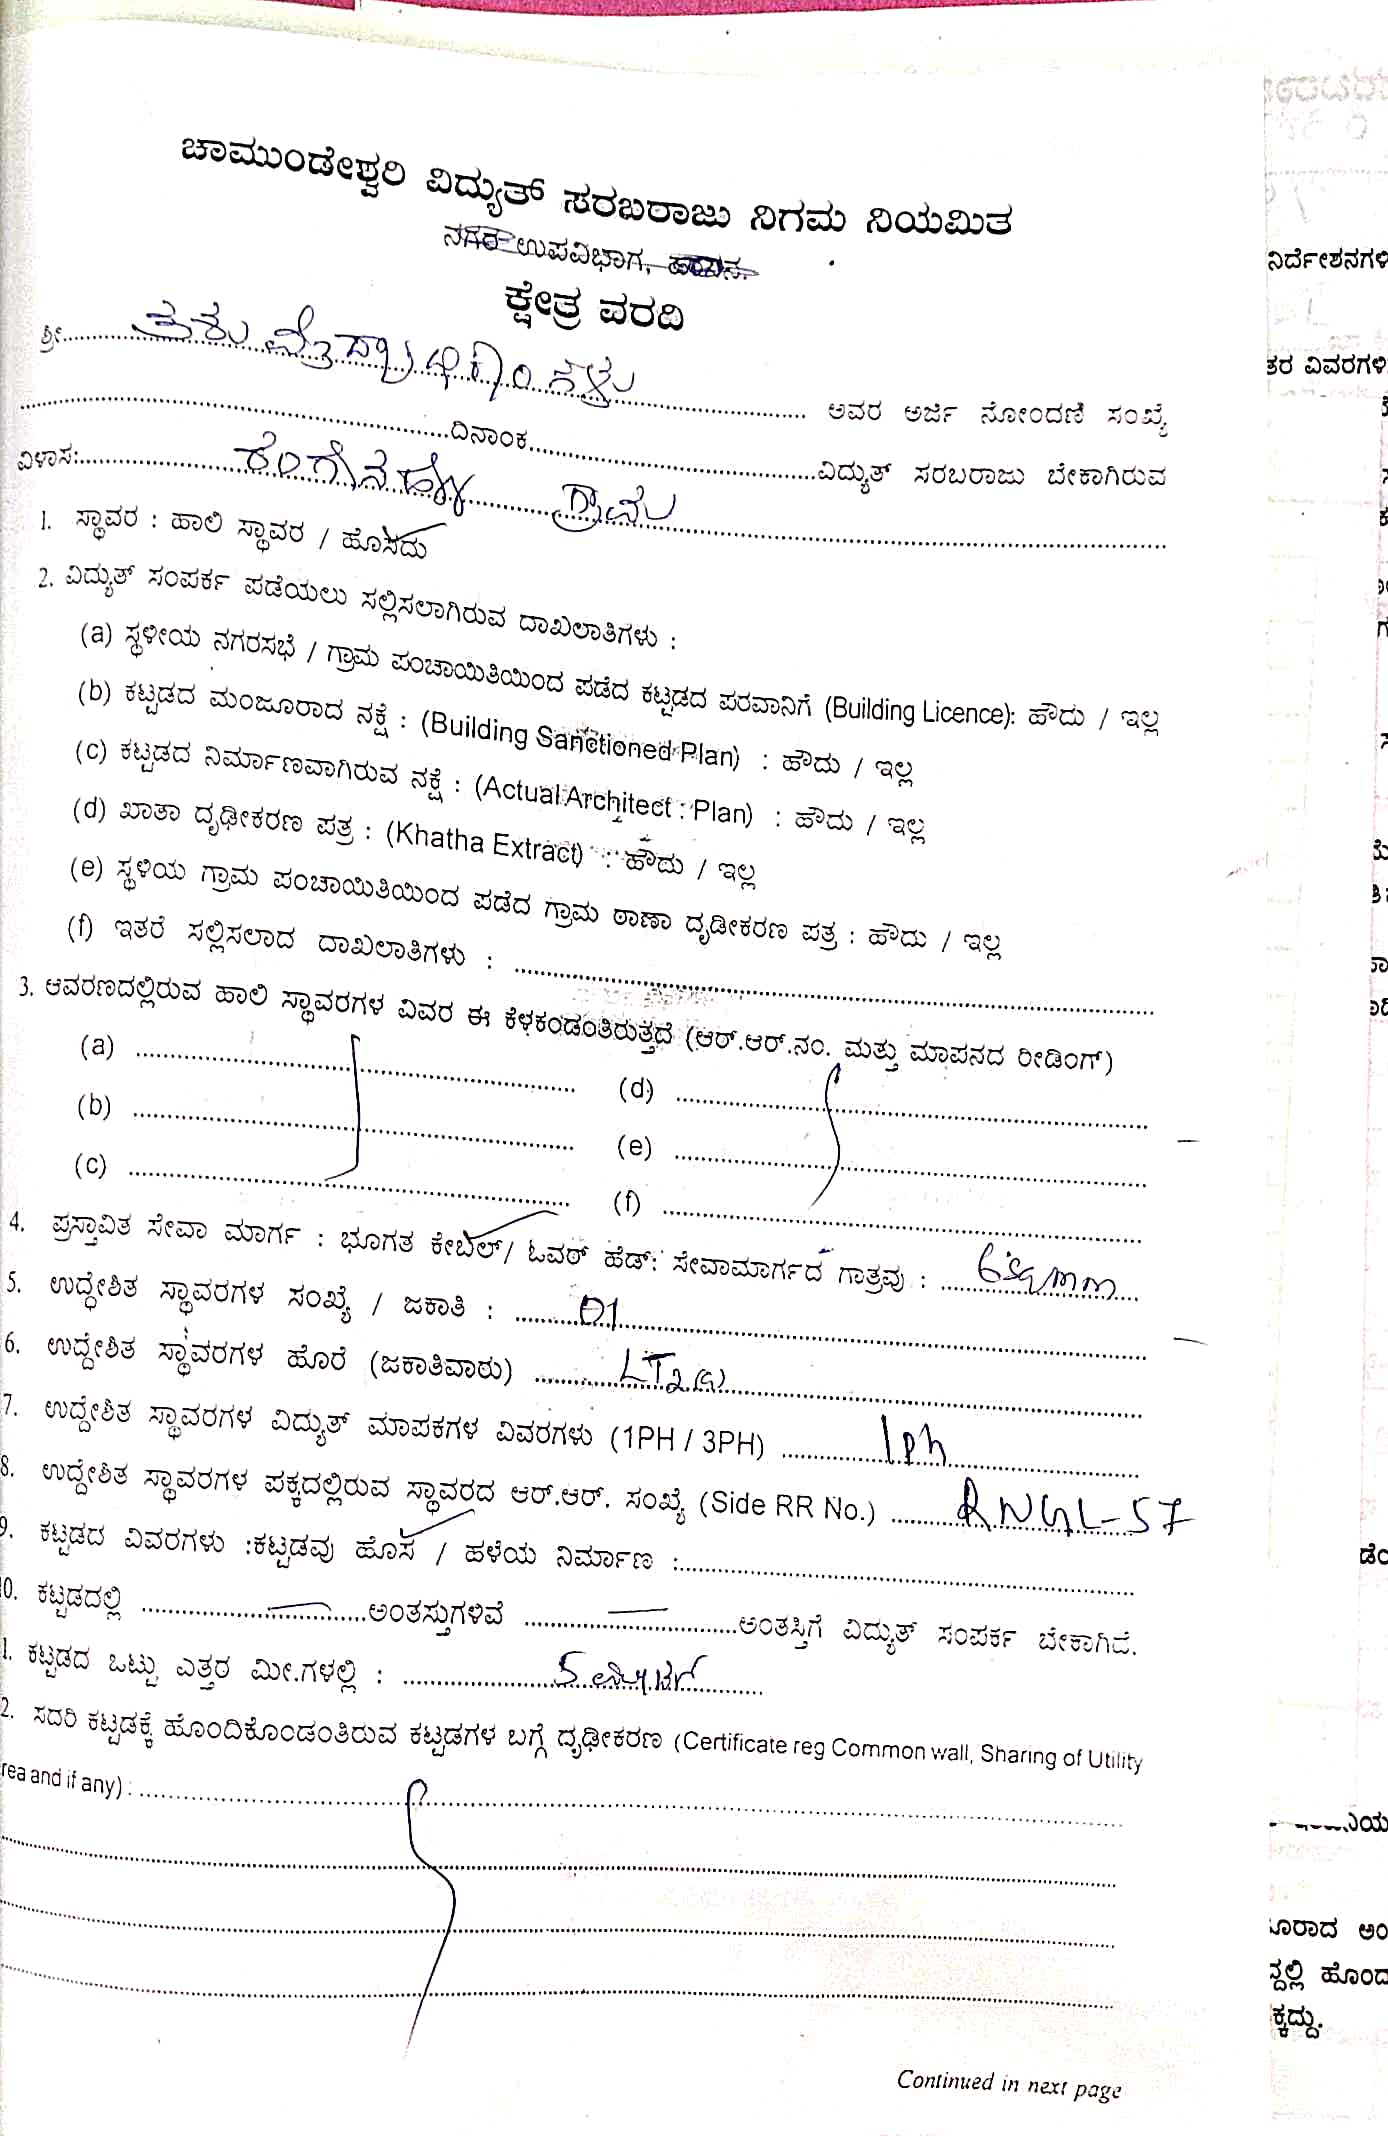 ಚಾಮುಂಡೇಶ್ವರಿ ವಿದ್ಯುತ್ ಸರಬರಾಜು ನಿಗಮ ನಿಯಮಿತ
ನಗರ ಉಪವಿಭಾಗ, ಹಾಸನ.
ಕ್ಷೇತ್ರ ವರದಿ
ಶ್ರೀ
ಅವರ ಅರ್ಜಿ ನೋಂದಣಿ ಸಂಖ್ಯೆ
ದಿನಾಂಕ ವಿದ್ಯುತ್ ಸರಬರಾಜು ಬೇಕಾಗಿರುವ
ವಿಳಾಸ: ಗ್ರಾಮ
1. ಸ್ಥಾವರ : ಹಾಲಿ ಸ್ಥಾವರ / ಹೊಸದು
2. ವಿದ್ಯುತ್ ಸಂಪರ್ಕ ಪಡೆಯಲು ಸಲ್ಲಿಸಲಾಗಿರುವ ದಾಖಲಾತಿಗಳು :
(a) ಸ್ಥಳೀಯ ನಗರಸಭೆ / ಗ್ರಾಮ ಪಂಚಾಯಿತಿಯಿಂದ ಪಡೆದ ಕಟ್ಟಡದ ಪರವಾನಿಗೆ (Building Licence): ಹೌದು / ಇಲ್ಲ
(b) ಕಟ್ಟಡದ ಮಂಜೂರಾದ ನಕ್ಷೆ : (Building Sanctioned Plan) : ಹೌದು / ಇಲ್ಲ
(c) ಕಟ್ಟಡದ ನಿರ್ಮಾಣವಾಗಿರುವ ನಕ್ಷೆ : (Actual Architect : Plan) : ಹೌದು / ಇಲ್ಲ
(d) ಖಾತಾ ದೃಢೀಕರಣ ಪತ್ರ : (Khatha Extract) : ಹೌದು / ಇಲ್ಲ
(e) ಸ್ಥಳಿಯ ಗ್ರಾಮ ಪಂಚಾಯಿತಿಯಿಂದ ಪಡೆದ ಗ್ರಾಮ ಠಾಣಾ ದೃಡೀಕರಣ ಪತ್ರ : ಹೌದು / ಇಲ್ಲ
(f) ಇತರೆ ಸಲ್ಲಿಸಲಾದ ದಾಖಲಾತಿಗಳು :
3. ಆವರಣದಲ್ಲಿರುವ ಹಾಲಿ ಸ್ಥಾವರಗಳ ವಿವರ ಈ ಕೆಳಕಂಡಂತಿರುತ್ತದೆ (ಆರ್.ಆರ್.ನಂ. ಮತ್ತು ಮಾಪನದ ರೀಡಿಂಗ್)
(a) (d)
(b) (e)
(c) (f)
4. ಪ್ರಸ್ತಾವಿತ ಸೇವಾ ಮಾರ್ಗ : ಭೂಗತ ಕೇಬಲ್/ ಓವರ್ ಹೆಡ್: ಸೇವಾಮಾರ್ಗದ ಗಾತ್ರವು : 6sqmm
5. ಉದ್ಧೇಶಿತ ಸ್ಥಾವರಗಳ ಸಂಖ್ಯೆ / ಜಕಾತಿ : 01
6. ಉದ್ದೇಶಿತ ಸ್ಥಾವರಗಳ ಹೊರೆ (ಜಕಾತಿವಾರು) LT2(a)
7. ಉದ್ದೇಶಿತ ಸ್ಥಾವರಗಳ ವಿದ್ಯುತ್ ಮಾಪಕಗಳ ವಿವರಗಳು (1PH / 3PH) 1ph
8. ಉದ್ದೇಶಿತ ಸ್ಥಾವರಗಳ ಪಕ್ಕದಲ್ಲಿರುವ ಸ್ಥಾವರದ ಆರ್.ಆರ್. ಸಂಖ್ಯೆ (Side RR No.) RNGL-57
9. ಕಟ್ಟಡದ ವಿವರಗಳು :ಕಟ್ಟಡವು ಹೊಸ / ಹಳೆಯ ನಿರ್ಮಾಣ :
0. ಕಟ್ಟಡದಲ್ಲಿ ಅಂತಸ್ತುಗಳಿವೆ ಅಂತಸ್ತಿಗೆ ವಿದ್ಯುತ್ ಸಂಪರ್ಕ ಬೇಕಾಗಿದೆ.
1. ಕಟ್ಟಡದ ಒಟ್ಟು ಎತ್ತರ ಮೀ.ಗಳಲ್ಲಿ : 5 ಮೀಟರ್
2. ಸದರಿ ಕಟ್ಟಡಕ್ಕೆ ಹೊಂದಿಕೊಂಡಂತಿರುವ ಕಟ್ಟಡಗಳ ಬಗ್ಗೆ ದೃಢೀಕರಣ (Certificate reg Common wall, Sharing of Utility
rea and if any) :
Continued in next page
ನಿರ್ದೇಶನಗಳ
ತರ ವಿವರಗಳ
ೂರಾದ ಅಂ
ನ್ನಲ್ಲಿ ಹೊಂದ
ಕ್ಕದ್ದು.